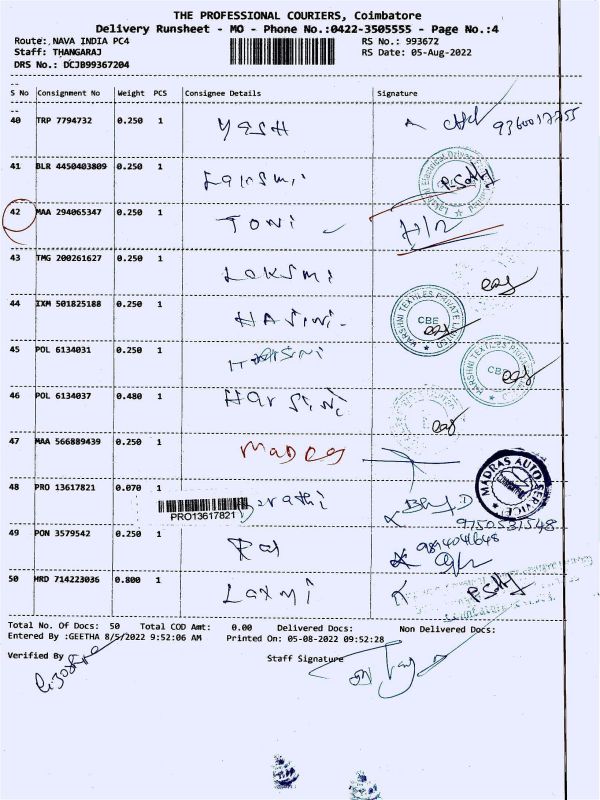 THE PROFESSIONAL COURIERS, Coimbatore
Delivery Runsheet - MO - Phone No.:0422-3505555 - Page No.:4
Route: NAVA INDIA PC4 RS No.: 993672
Staff: THANGARAJ RS Date: 05-Aug-2022
DRS No.: DCJB99367204
S No Consignment No Weight PCS Consignee Details Signature
40 TRP 7794732 0.250 1 YESH
41 BLR 4450403809 0.250 1
42 MAA 294065347 0.250 1 TONi H/R
43 TMG 200261627 0.250 1 LaKSmi
44 IXM 501825188 0.250 1 HASini
VARSHNI TEXTILES PRIVATE LIMITED
CBE
45 POL 6134031 0.250 1
VARSHNI TEXTILES PRIVATE LIMITED
CBE
46 POL 6134037 0.480 1 Harsini
47 MAA 566889439 0.250 1 MaDras
MADRAS AUTO SERVICE
48 PRO 13617821 0.070 1
PRO13617821
9750531548
49 PON 3579542 0.250 1 Raj 9894041648
50 HRD 714223036 0.800 1 Laxmi
Total No. Of Docs: 50 Total COD Amt: 0.00 Delivered Docs: Non Delivered Docs:
Entered By :GEETHA 8/5/2022 9:52:06 AM Printed On: 05-08-2022 09:52:28
Verified By Staff Signature